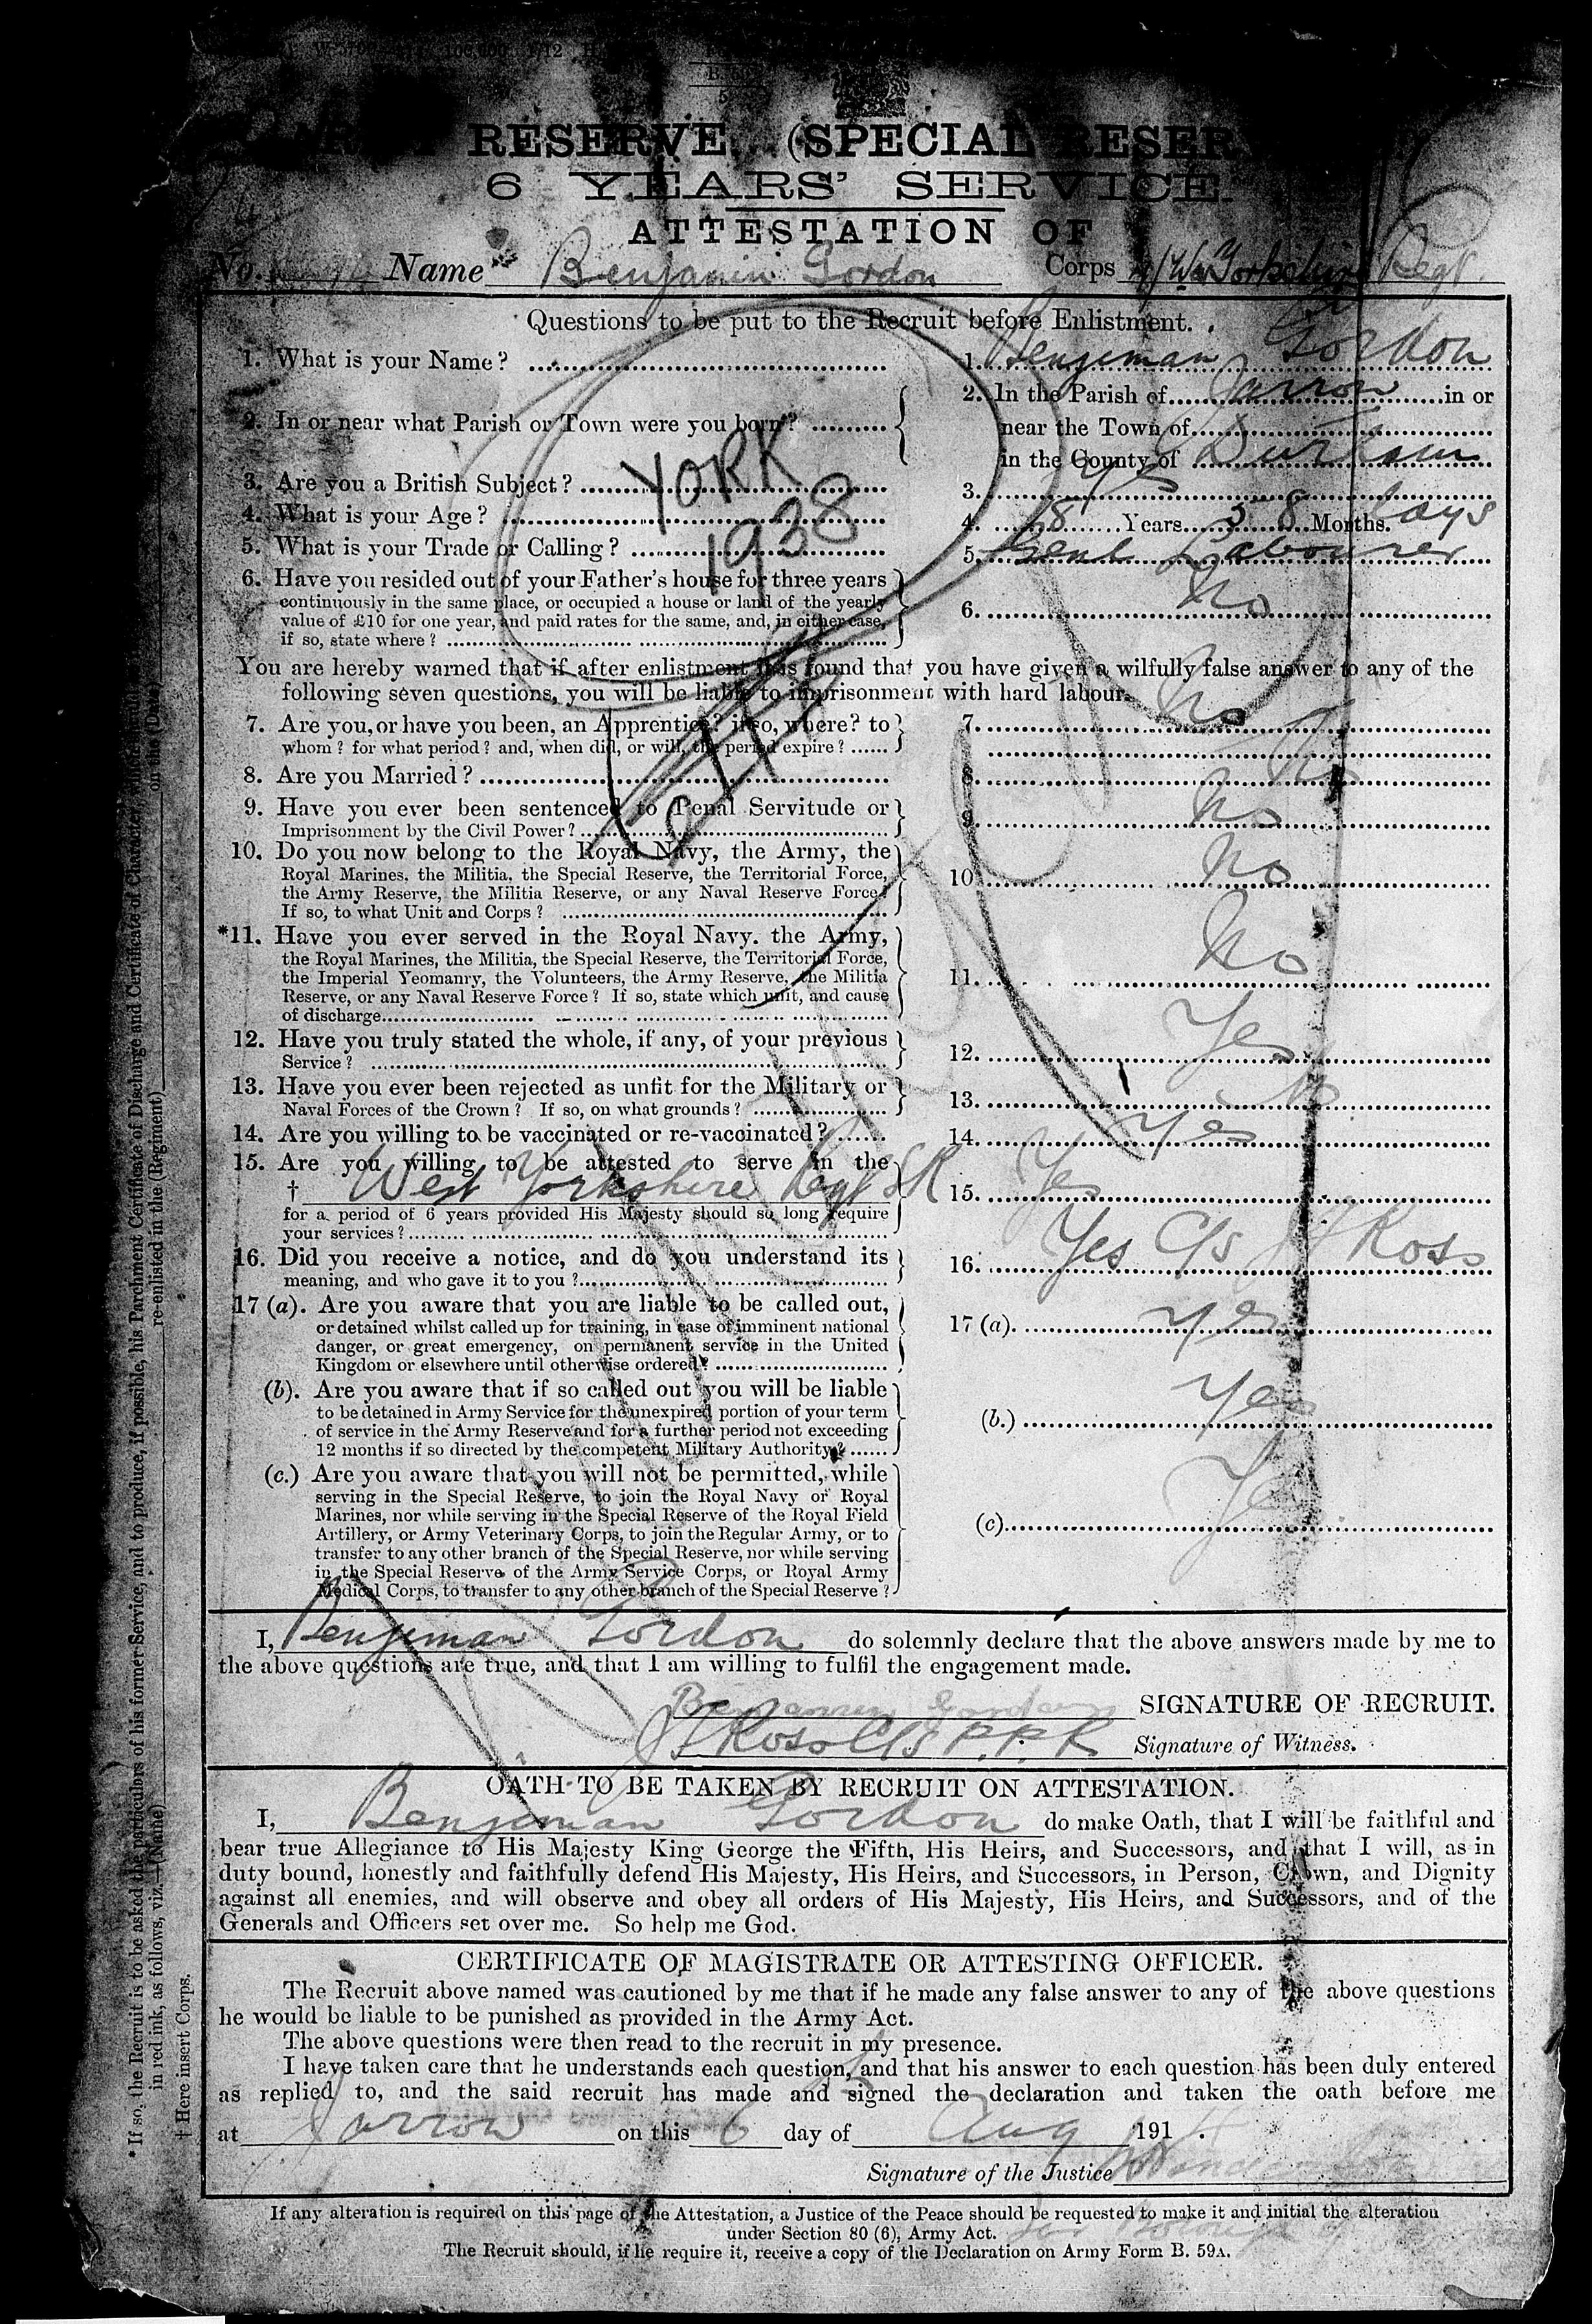 RESERVE (SPECIAL RESER
6 YEARS' SERVICE.
ATTESTATION OF
No. Name Benjamin Gordon Corps W. Yorkshire Regt.
Questions to be put to the Recruit before Enlistment.
1. What is your Name? 1. Benjeman Gordon
2. In or near what Parish or Town were you born? 2. In the Parish of Jarrow in or
near the Town of
in the County of Durham
3. Are you a British Subject? 3. Yes
4. What is your Age? 4. 18 Years 58 Months. days
5. What is your Trade or Calling? 5. Genl Labourer
YORK
1938
6. Have you resided out of your Father's house for three years
continuously in the same place, or occupied a house or land of the yearly
value of £10 for one year, and paid rates for the same, and, in either case,
if so, state where? 6. No
You are hereby warned that if after enlistment it is found that you have given a wilfully false answer to any of the
following seven questions, you will be liable to imprisonment with hard labour.
7. Are you, or have you been, an Apprentice? if so, where? to
whom? for what period? and, when did, or will, the period expire? 7. No
8. Are you Married? 8. No
9. Have you ever been sentenced to Penal Servitude or
Imprisonment by the Civil Power? 9. No
10. Do you now belong to the Royal Navy, the Army, the
Royal Marines, the Militia, the Special Reserve, the Territorial Force,
the Army Reserve, the Militia Reserve, or any Naval Reserve Force?
If so, to what Unit and Corps? 10 No
*11. Have you ever served in the Royal Navy. the Army,
the Royal Marines, the Militia, the Special Reserve, the Territorial Force,
the Imperial Yeomanry, the Volunteers, the Army Reserve, the Militia
Reserve, or any Naval Reserve Force? If so, state which unit, and cause
of discharge 11. No
12. Have you truly stated the whole, if any, of your previous
Service? 12. Yes
13. Have you ever been rejected as unfit for the Military or
Naval Forces of the Crown? If so, on what grounds? 13. No
14. Are you willing to be vaccinated or re-vaccinated? 14. Yes
15. Are you willing to be attested to serve in the
† West Yorkshire Regt SR
for a period of 6 years provided His Majesty should so long require
your services? 15. Yes
16. Did you receive a notice, and do you understand its
meaning, and who gave it to you? 16. Yes C/S J F Ross
17 (a). Are you aware that you are liable to be called out,
or detained whilst called up for training, in case of imminent national
danger, or great emergency, on permanent service in the United
Kingdom or elsewhere until otherwise ordered? 17 (a). Yes
(b). Are you aware that if so called out you will be liable
to be detained in Army Service for the unexpired portion of your term
of service in the Army Reserve and for a further period not exceeding
12 months if so directed by the competent Military Authority? (b.) Yes
(c.) Are you aware that you will not be permitted, while
serving in the Special Reserve, to join the Royal Navy or Royal
Marines, nor while serving in the Special Reserve of the Royal Field
Artillery, or Army Veterinary Corps, to join the Regular Army, or to
transfer to any other branch of the Special Reserve, nor while serving
in the Special Reserve of the Army Service Corps, or Royal Army
Medical Corps, to transfer to any other branch of the Special Reserve? (c) Yes
I, Benjeman Gordon do solemnly declare that the above answers made by me to
the above questions are true, and that I am willing to fulfil the engagement made.
Benjamin Gordon SIGNATURE OF RECRUIT.
J F Ross C/S P.P.R Signature of Witness.
OATH TO BE TAKEN BY RECRUIT ON ATTESTATION.
I, Benjeman Gordon do make Oath, that I will be faithful and
bear true Allegiance to His Majesty King George the Fifth, His Heirs, and Successors, and that I will, as in
duty bound, honestly and faithfully defend His Majesty, His Heirs, and Successors, in Person, Crown, and Dignity
against all enemies, and will observe and obey all orders of His Majesty, His Heirs, and Successors, and of the
Generals and Officers set over me. So help me God.
CERTIFICATE OF MAGISTRATE OR ATTESTING OFFICER.
The Recruit above named was cautioned by me that if he made any false answer to any of the above questions
he would be liable to be punished as provided in the Army Act.
The above questions were then read to the recruit in my presence.
I have taken care that he understands each question, and that his answer to each question has been duly entered
as replied to, and the said recruit has made and signed the declaration and taken the oath before me
at Jarrow on this 6 day of Aug 191 .
Signature of the Justice
If any alteration is required on this page of the Attestation, a Justice of the Peace should be requested to make it and initial the alteration
under Section 80 (6), Army Act.
The Recruit should, if he require it, receive a copy of the Declaration on Army Form B. 59A.
* If so, the Recruit is to be asked the particulars of his former Service, and to produce, if possible, his Parchment Certificate of Discharge and Certificate of Character,
in red ink, as follows, viz.—(Name) re-enlisted in the (Regiment) on the (Date)
† Here insert Corps.